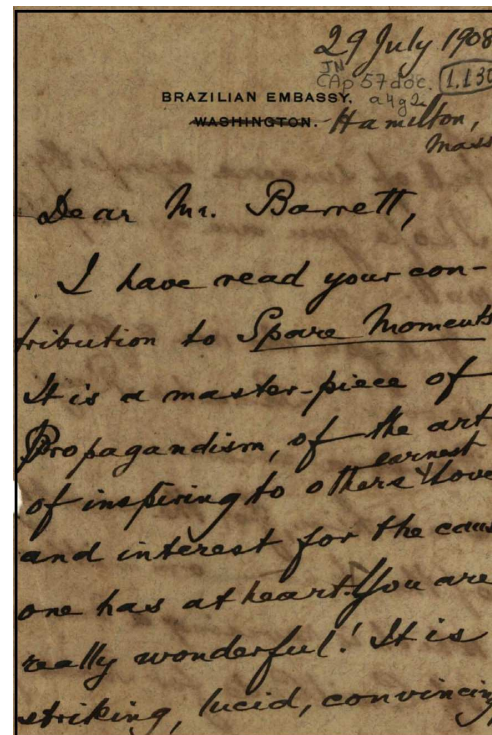 29 July 1908
JN
CAp 57 doc. 1.130
a4g2i
BRAZILIAN EMBASSY.
WASHINGTON. Hamilton,
Mass
Dear Mr. Barrett,
I have read your con-
tribution to Spare Moments
It is a master-piece of
Propagandism, of the art
earnest
of inspiring to others love
and interest for the caus
one has at heart. You are
really wonderful! It is
striking, lucid, convincing,